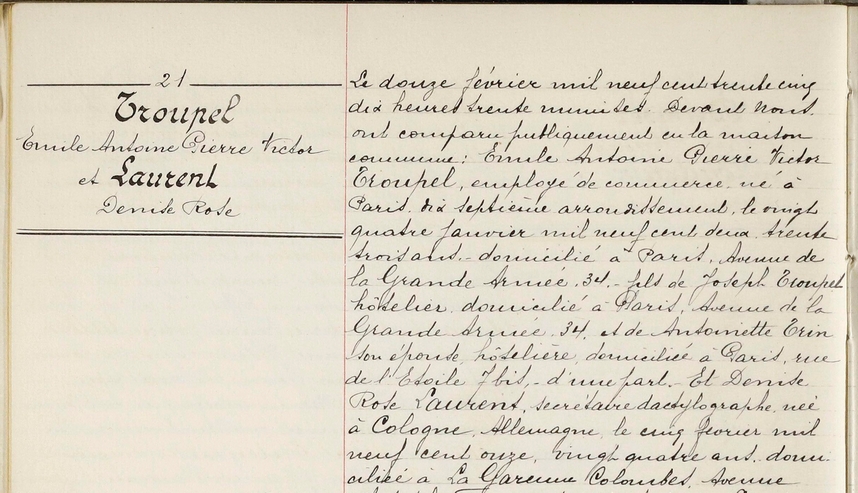 21
Troupel
Emile Antoine Pierre Victor
et Laurent
Denise Rose
Le douze février mil neuf cent trente cinq
dix heures trente minutes. Devant Nous
ont comparu publiquement en la maison
commune: Emile Antoine Pierre Victor
Troupel, employé de commerce, né à
Paris, dix septième arrondissement, le vingt
quatre janvier mil neuf cent deux, trente
trois ans, - domicilié à Paris, Avenue de
la Grande Armée, 34, - fils de Joseph Troupel
hôtelier, domicilié à Paris, Avenue de la
Grande Armée, 34, et de Antoinette Trin
son épouse, hôtelière, domiciliée à Paris, rue
de l'Etoile 7bis, - d'une part. - Et Denise
Rose Laurent, secrétaire dactylographe, née
à Cologne, Allemagne, le cinq février mil
neuf cent onze, vingt quatre ans, domi
ciliée à La Garenne Colombes, Avenue